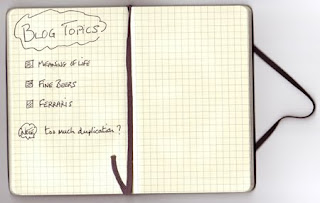 BLOG TOPICS
MEANING OF LIFE
FINE BEERS
FERRARIS
NOTE too much duplication?